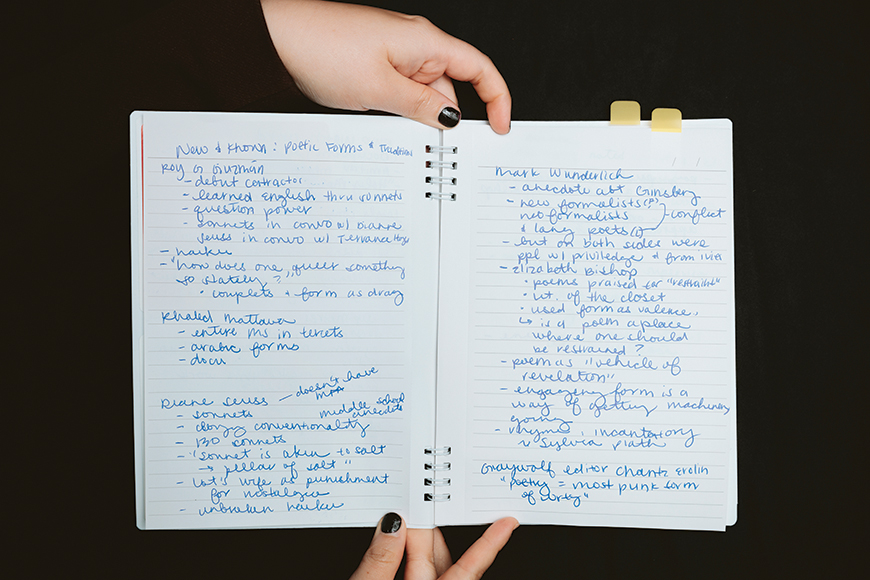 New & Known: Poetic Forms & Traditions
Roy G Guzmán
- debut contractor
- learned English thru sonnets
- question power
- sonnets in convo w/ Dianne
Seuss in convo w/ Terrance Hayes
- haiku
- "how does one queer something
so stately?"
• couplets + form as drag
Khaled Mattawa
- entire ms in tercets
- arabic forms
- docu
Diane Seuss — doesn't have
MFA
- sonnets
middle school
anecdote
- conventionality
- 130 sonnets
- "sonnet is akin to salt
→ pillar of salt"
- Lot's wife as punishment
for nostalgia
- unbroken haiku
Mark Wunderlich
- anecdote abt Ginsberg
- new formalists (?)
neoformalists
- conflict
& lang poets (?)
- but on both sides were
ppl w/ priviledge & from ivies
- Elizabeth Bishop
• poems praised for "restraint"
• wt. of the closet
• used form as valence,
↳ is a poem a place
where one should
be restrained?
- poem as "vehicle of
revelation"
- engaging form is a
way of getting machinery
going
- rhyme, incantatory
Sylvia Plath
Graywolf editor Chantz Erolin
"poetry = most punk form
of writing"